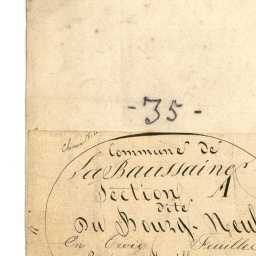 - 35 -
Commune de
La Baussaine
Section A
dite
Du Bourg-Neuf
En Trois Feuilles